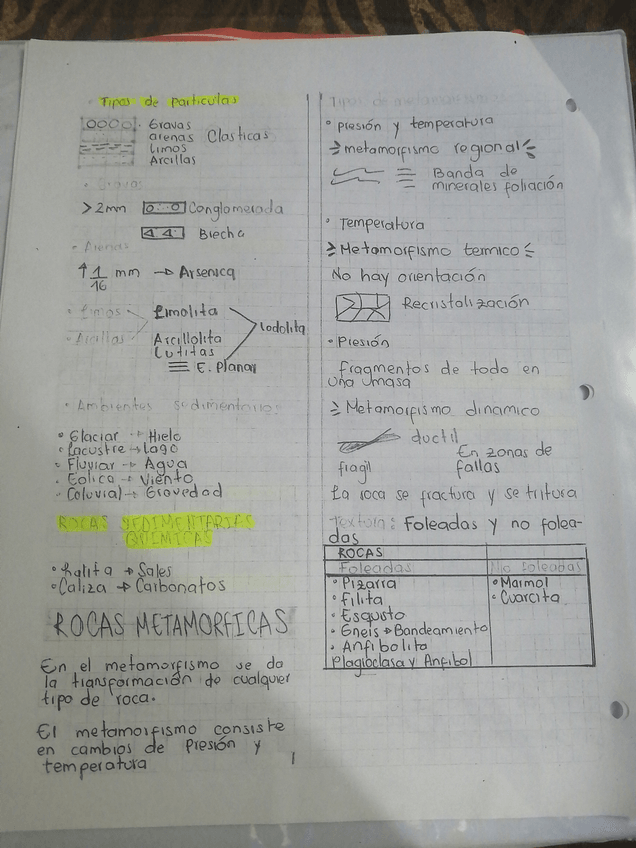 Tipos de Particulas
Gravas
arenas Clasticas
Limos
Arcillas
Gravas
>2mm Conglomerada
Biecha
Arenas
↑ 1/16 mm → Arsenica
Limos Limolita
Lodolita
Arcillas Arcillolita
Lutitas
E. Planar
• Ambientes sedimentarios
• Glaciar → Hielo
• Lacustre → Lago
• Fluviar → Agua
• Eolica → Viento
• Coluvial → Gravedad
ROCAS SEDIMENTARIAS
QUIMICAS
• halita → Sales
• Caliza → Carbonatos
ROCAS METAMORFICAS
En el metamorfismo se da
la transformación de cualquier
tipo de roca.
El metamorfismo consiste
en cambios de Presión y
temperatura
Tipos de metamorfismo
• Presión y temperatura
metamorfismo regional
Banda de
minerales foliación
• Temperatura
Metamorfismo termico
No hay orientación
Recristalización
• Presión
fragmentos de todo en
una masa
Metamorfismo dinamico
ductil
En zonas de
fragil fallas
La roca se fractura y se tritura
Textura: Foleadas y no folea-
das
ROCAS
Foleadas No foleadas
• Pizarra • Marmol
• Filita • Cuarcita
• Esquisto
• Gneis → Bandeamiento
• Anfibolita
Plagioclasa y Anfibol